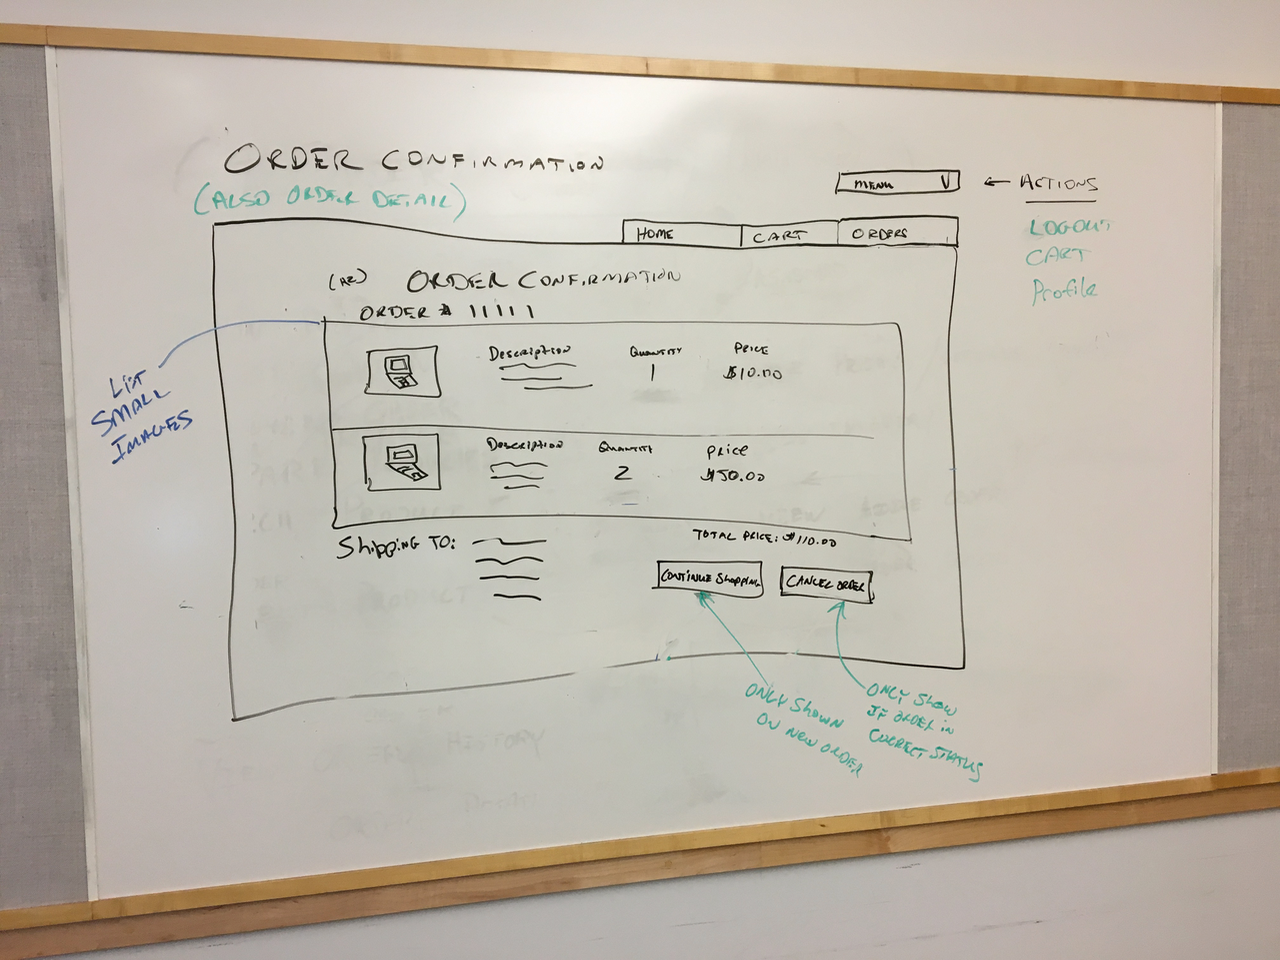 ORDER CONFIRMATION
(ALSO ORDER DETAIL)
MENU V ← ACTIONS
LOGOUT
CART
Profile
HOME CART ORDERS
ORDER CONFIRMATION
ORDER # 11111
LIST
SMALL
IMAGES
Description QUANTITY PRICE
1 $10.00
Description QUANTITY PRICE
2 $50.00
Shipping TO:
TOTAL PRICE: $110.00
CONTINUE Shopping CANCEL ORDER
ONLY SHOWN
ON NEW ORDER
ONLY Show
IF ORDER in
CORRECT STATUS
HISTORY